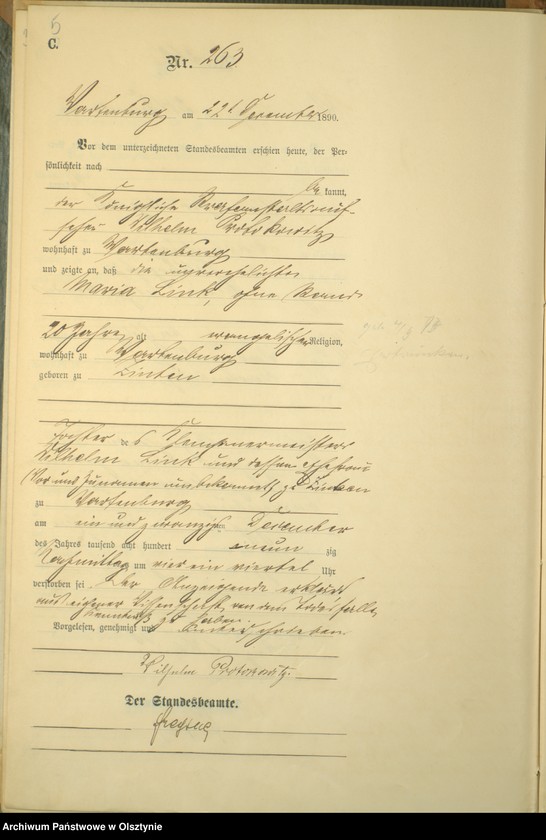 5
C.
Nr. 263
Wartenburg am 22t Dezember 1890.
Vor dem unterzeichneten Standesbeamten erschien heute, der Per-
sönlichkeit nach
be kannt,
der Königliche Strafanstaltsauf-
seher Wilhelm Protokowitz
wohnhaft zu Wartenburg
und zeigte an, daß die unverehelichte
Maria Link, ohne Stand
20 Jahre alt evangelischer Religion,
wohnhaft zu Wartenburg
geboren zu Linken
Tochter des Klempnermeisters
Wilhelm Link und dessen Ehefrau
Vor und Zunamen unbekannt zu Linken
zu Wartenburg
am ein und zwanzigsten Dezember
des Jahres tausend acht hundert neun zig
Nachmittag um vier ein viertel Uhr
verstorben sei. Der Anzeigende erklärt
aus eigener Wissenschaft, von dem Todesfalle
Kenntniß zu haben.
Vorgelesen, genehmigt und unterschrieben
Wilhelm Protokowitz.
Der Standesbeamte.
Archiwum Państwowe w Olsztynie